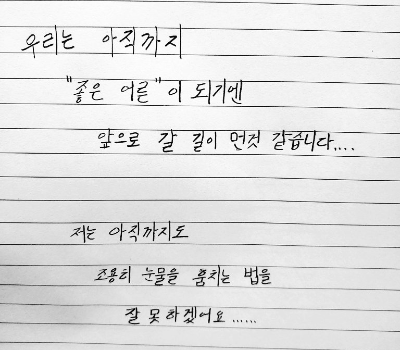 우리는 아직까지
"좋은 어른"이 되기엔
앞으로 갈 길이 먼것 같습니다....
저는 아직까지도
조용히 눈물을 훔치는 법을
잘 못하겠어요......